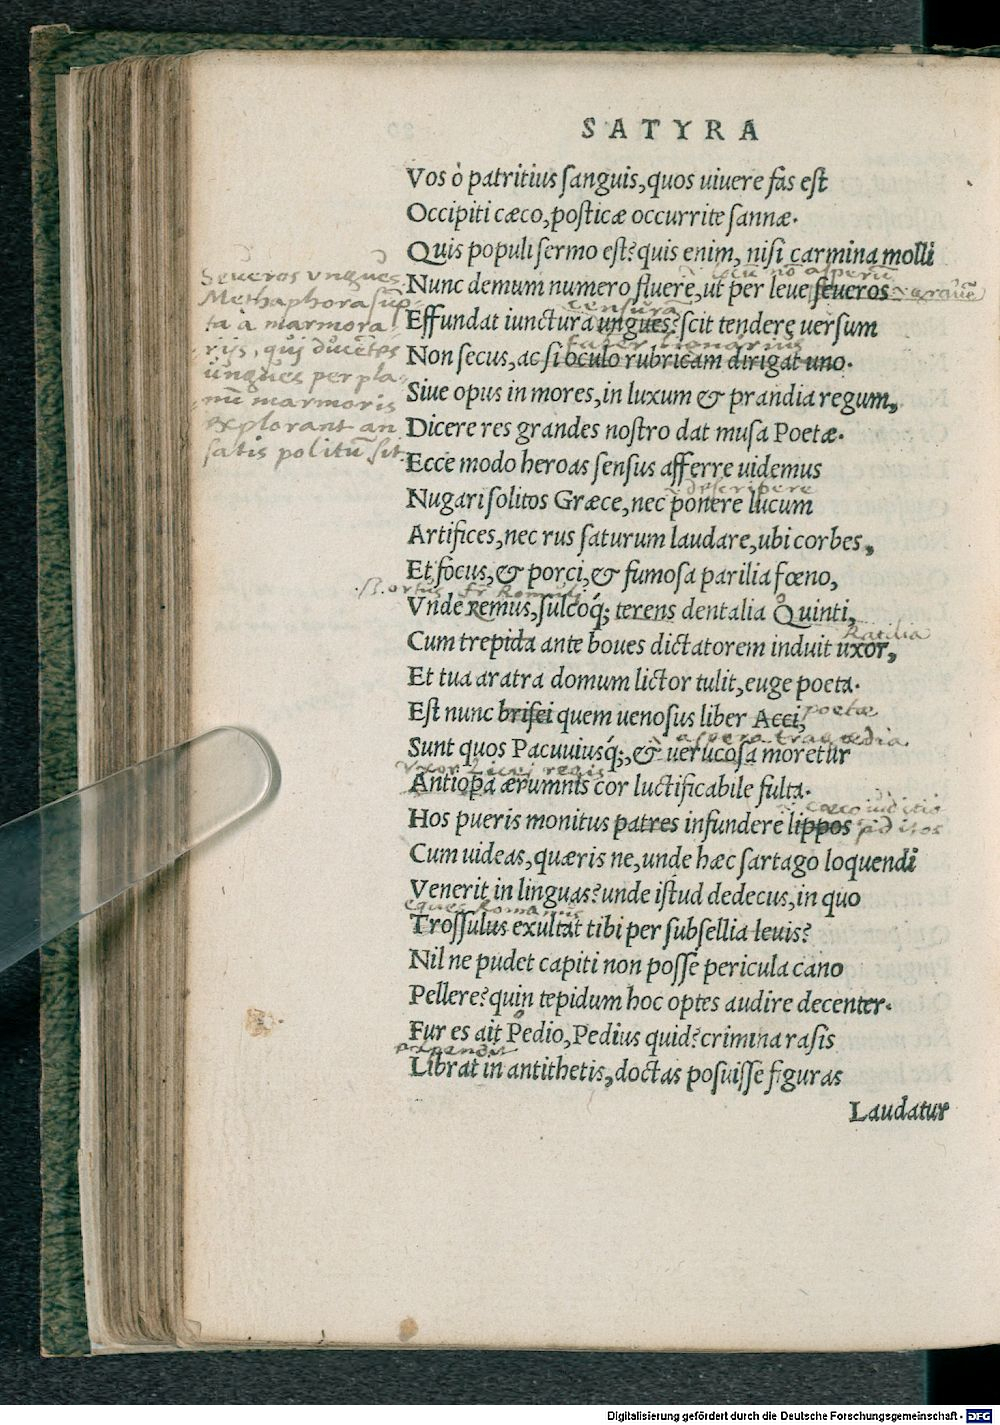 SATYRA
Vos ò patritius ſanguis, quos uiuere fas eſt
Occipiti cæco, poſticæ occurrite ſannæ.
Quis populi ſermo eſt? quis enim, niſi carmina molli
Seueros vngues
nō aſperū
Nunc demum numero fluere, ut per leue ſeueros
Methaphora ſūp-
cenſurā
Effundat iunctura ungues? ſcit tendere uersum
ta à marmora
riis, qui ducētes
Non ſecus, ac ſi oculo rubricam dirigat uno.
ungues per pla-
Siue opus in mores, in luxum & prandia regum,
nū marmoris
explorant an
Dicere res grandes noſtro dat muſa Poetæ.
ſatis politū ſit.
Ecce modo heroas ſenſus afferre uidemus
deſcribere
Nugari ſolitos Græce, nec ponere lucum
Artifices, nec rus ſaturum laudare, ubi corbes,
Et focus, & porci, & fumoſa parilia fœno,
ortus
Vnde Remus, ſulcoq́; terens dentalia Quinti,
Ratilia
Cum trepida ante boues dictatorem induit uxor,
Et tua aratra domum lictor tulit, euge poeta.
Eſt nunc briſei quem uenoſus liber Acci,
poetæ
aſpera tragœdia
Sunt quos Pacuuiusq́;, & uerucoſa moretur
Vxor Lici regis
Antiopa ærumnis cor luctificabile fulta.
cæco iuditio
Hos pueris monitus patres infundere lippos
pditos
Cum uideas, quæris ne, unde hæc ſartago loquendi
Venerit in linguas? unde iſtud dedecus, in quo
eques Romanus
Troſſulus exultat tibi per subſellia leuis?
Nil ne pudet capiti non poſſe pericula cano
Pellere? quin tepidum hoc optes audire decenter.
Fur es ait Pedio, Pedius quid? crimina raſis
expendit
Librat in antithetis, doctas poſuiſſe figuras
Laudatur
Digitalisierung gefördert durch die Deutsche Forschungsgemeinschaft - DFG